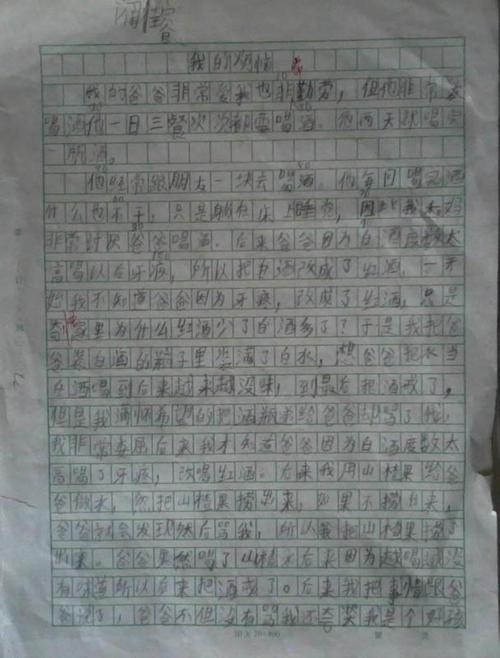 我的烦恼
我的爸爸非常爱我也非勤劳，但他非常爱
喝酒他一日三餐次次都要喝酒。他两天就喝完
一瓶酒。
他经常跟朋友一块去喝酒。他每日喝完酒
什么也不干，只是躺在床上睡觉，因此我和妈
非常讨厌爸爸喝酒。后来爸爸因为白酒度数太
高喝以后牙疼，所以把白酒改成了红酒。一开
始我不知道爸爸因为牙疼，改成了红酒，只是
奇怪家里为什么红酒少了白酒多了？于是我把爸
爸装白酒的瓶子里盛满了白水，想爸爸把水当
白酒喝到后来越来越没味，到最后把酒戒了。
但是我满怀希望的把酒瓶拿给爸爸却骂了我，
我非常委屈后来我才知道爸爸因为白酒度数太
高喝了牙疼，改喝红酒。后来我用山楂果给爸
爸做水，然把山楂果捞出来，如果不捞出来，
爸爸就会发现然后骂我，所以我把山楂果捞了
出来。爸爸果然喝了山楂水后来因为越喝越没
有味道所以后来把酒戒了。后来我把事情跟爸
爸说了，爸爸不但没有骂我还夸奖我是个好孩
20×20=400